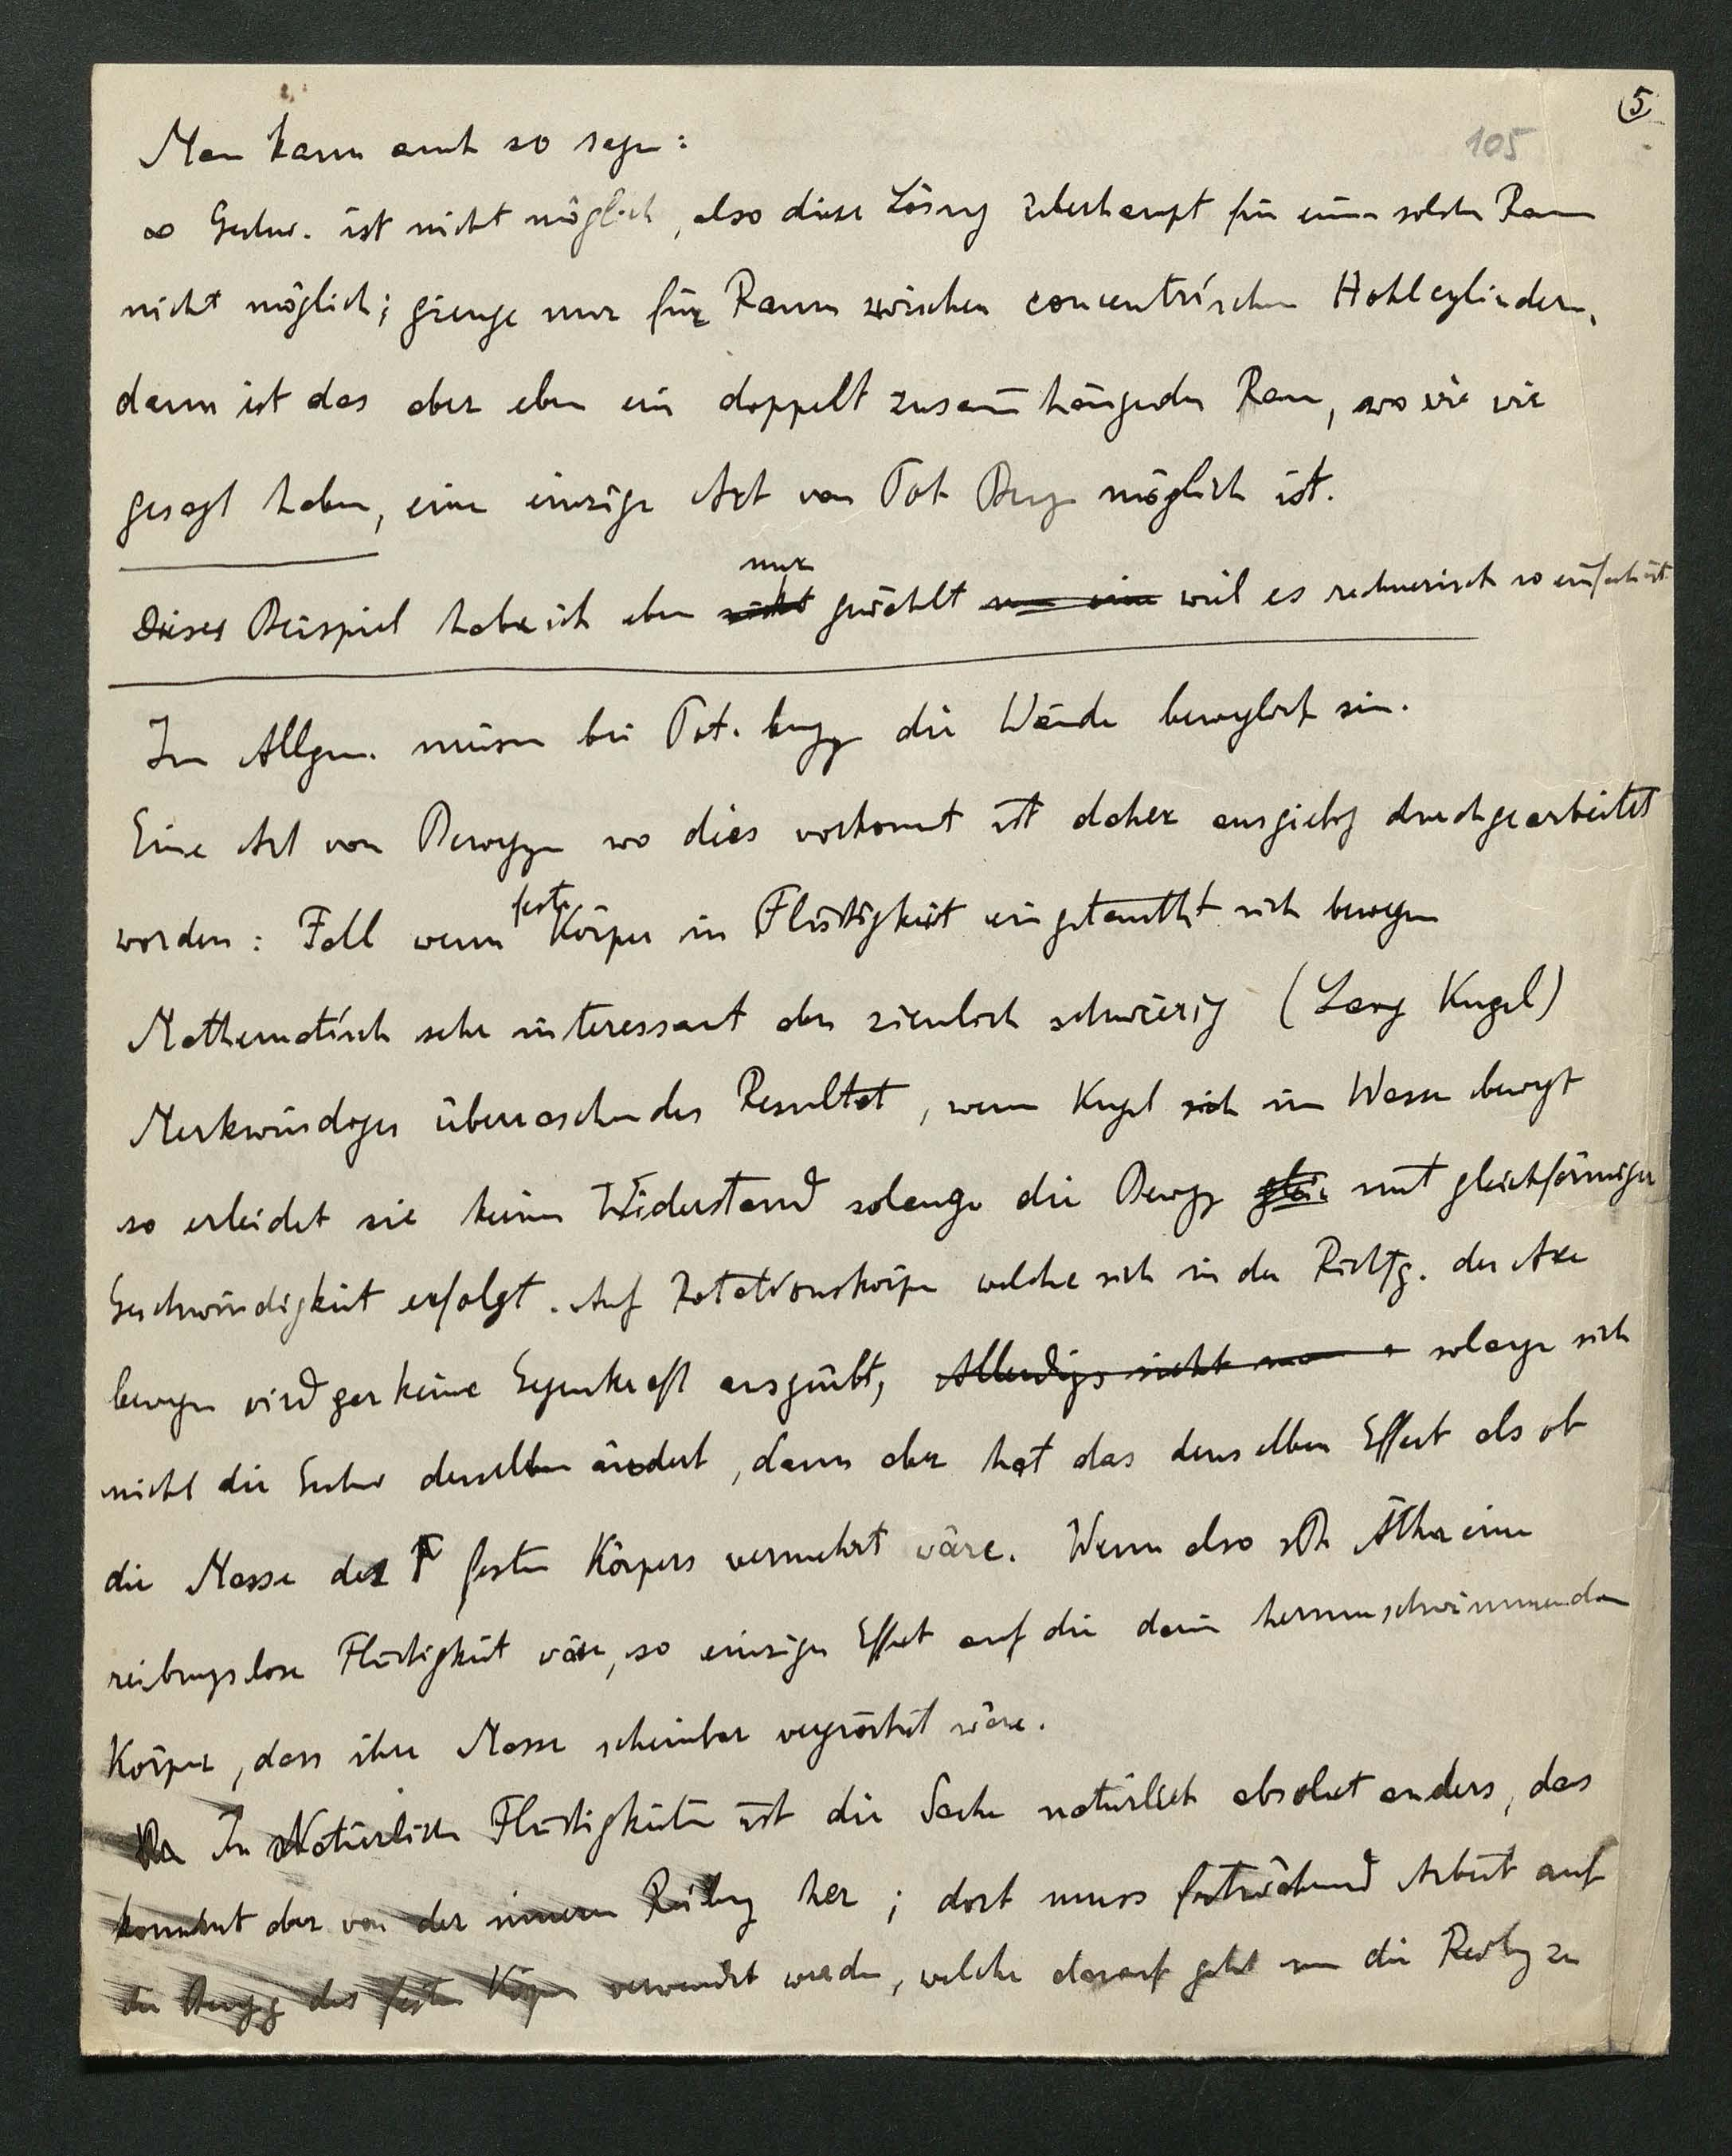 5
105
Man kann auch so sagen:
∞ Geschw. ist nicht möglich, also diese Lösung überhaupt für einen solchen Raum
nicht möglich; gienge nur für Raum zwischen concentrischen Hohlcylindern,
dann ist das aber eben ein doppelt zusam̄hängender Raum, wo wie wir
gesagt haben, eine einzige Art von Pot Bewg möglich ist.
nur
Dieses Beispiel habe ich eben nicht gewählt weil es rechnerisch so einfach ist.
Im Allgem. müssen bei Pot. bewgg die Wände beweglich sein.
Eine Art von Beweggen wo dies vorkommt ist daher ausgiebig durchgearbeitet
worden: Fall wenn feste Körper in Flüssigkeit eingetaucht sich bewegen
Mathematisch sehr interessant aber ziemlich schwierig (Kugel)
Merkwürdiges überraschendes Resultat, wenn Kugel sich im Wasser bewegt
so erleidet sie keinen Widerstand solange die Bewgg glei mit gleichförmiger
Geschwindigkeit erfolgt. Auf Rotationskörper welche sich in der Richtg. der Axe
bewegen wird gar keine Gegenkraft ausgeübt, Allerdings nicht solange sich
nicht die Geschw derselben ändert, dann aber hat das denselben Effect als ob
die Masse des F festen Körpers vermehrt wäre. Wenn also Äther eine
reibungslose Flüssigkeit wäre, so einziger Effect auf die darin herumschwimmenden
Körper, dass ihre Masse scheinbar vergrössert wäre.
In Natürlichen Flüssigkeiten ist die Sache natürlich absolut anders, das
kommt aber von der inneren Reibung her; dort muss fortwährend Arbeit auf
die Bewgg des festen Körpers verwendet werden, welche darauf geht um die Reibg zu